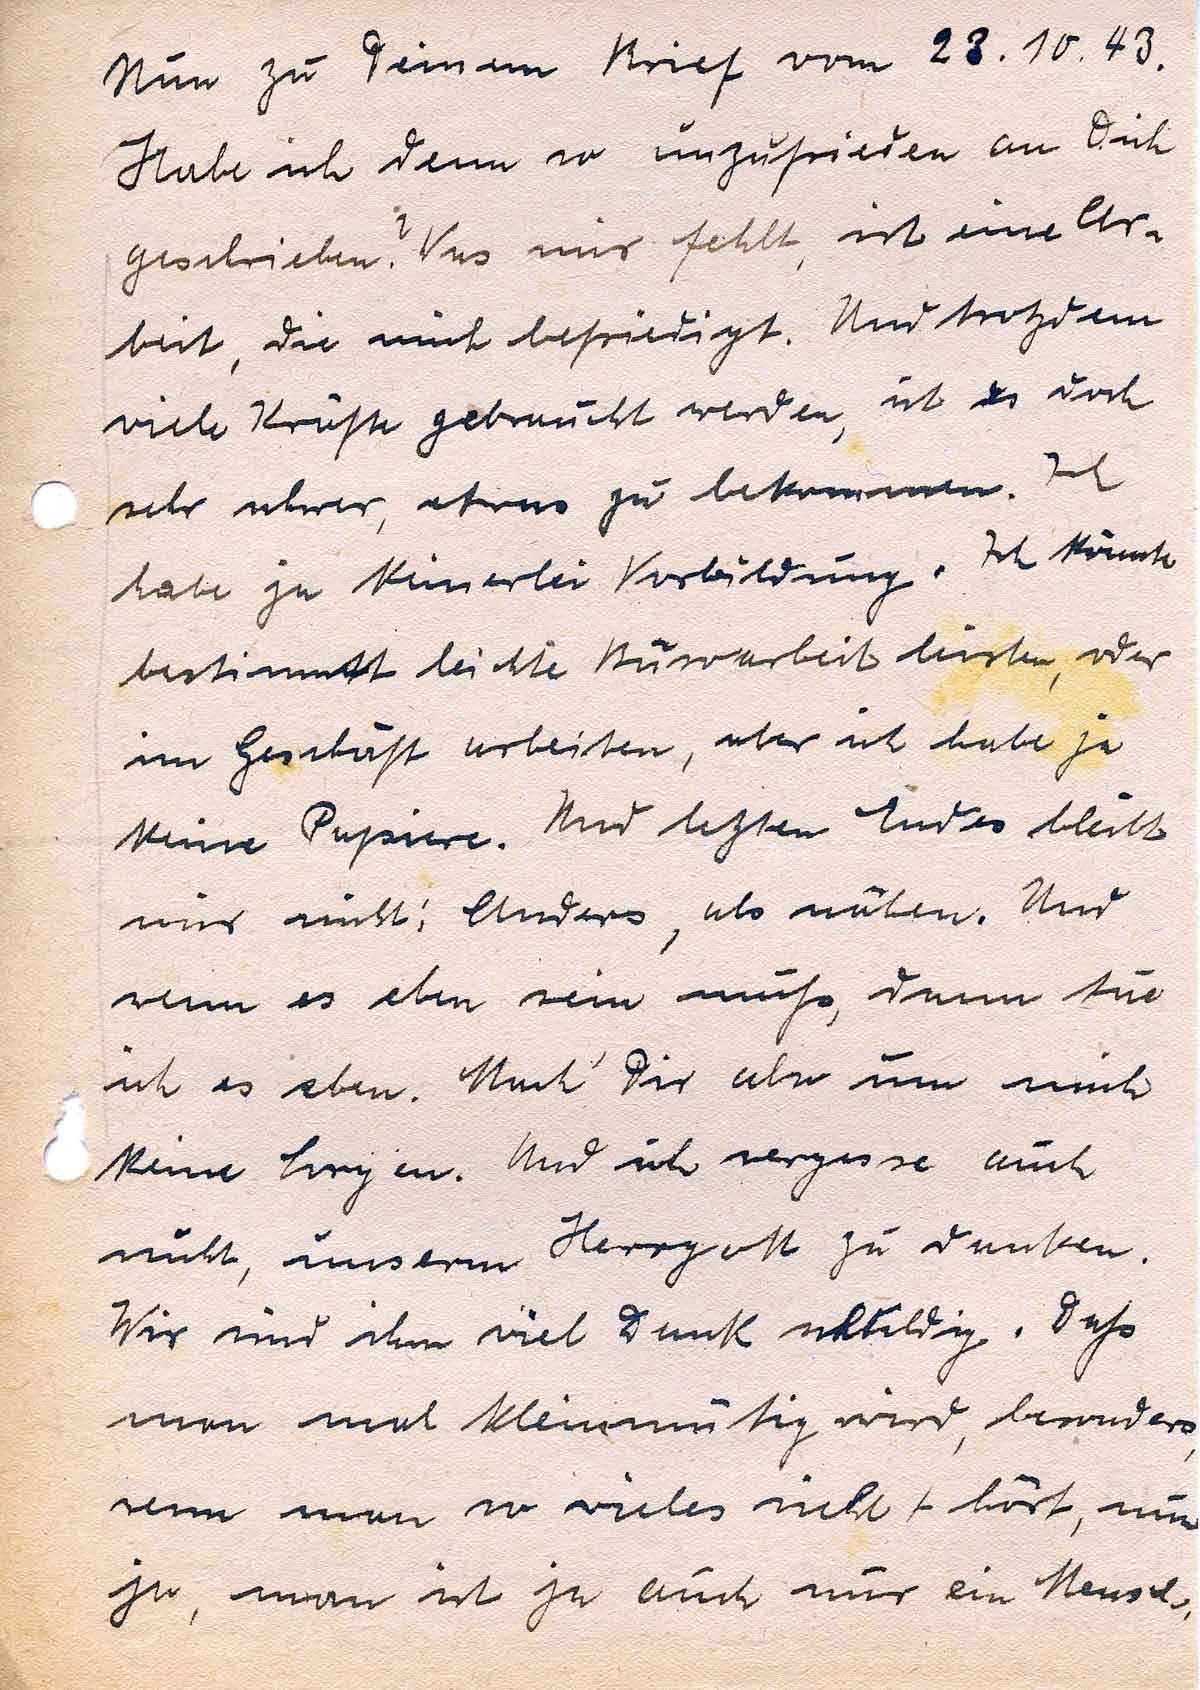 Nun zu Deinem Brief vom 23.10.43.
Habe ich denn so unzufrieden an Dich
geschrieben? Was mir fehlt, ist eine Ar-
beit, die mich befriedigt. Und trotzdem
viele Kräfte gebraucht werden, ist es doch
sehr schwer, etwas zu bekommen. Ich
habe ja keinerlei Vorbildung. Ich könnte
bestimmt leichte Büroarbeit leisten, oder
im Geschäft arbeiten, aber ich habe ja
keine Papiere. Und letzten Endes bleibt
mir nicht's Anders, als nähen. Und
wenn es eben sein muß, dann tue
ich es eben. Mach' Dir also um mich
keine Sorgen. Und ich vergesse auch
nicht, unserm Herrgott zu danken.
Wir sind ihm viel Dank schuldig. Daß
man mal kleinmütig wird, besonders,
wenn man so vieles sieht + hört, nun
ja, man ist ja auch nur ein Mensch.